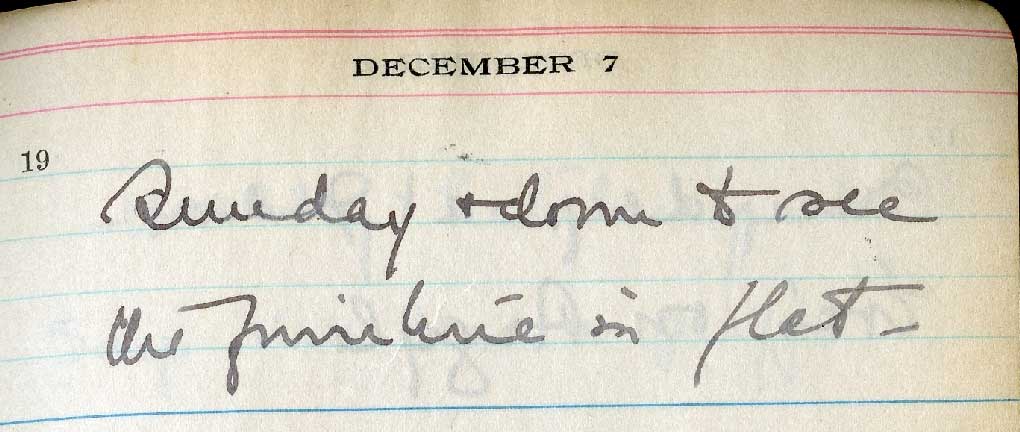 DECEMBER 7
19
Sunday + down to see
the furniture in flat –